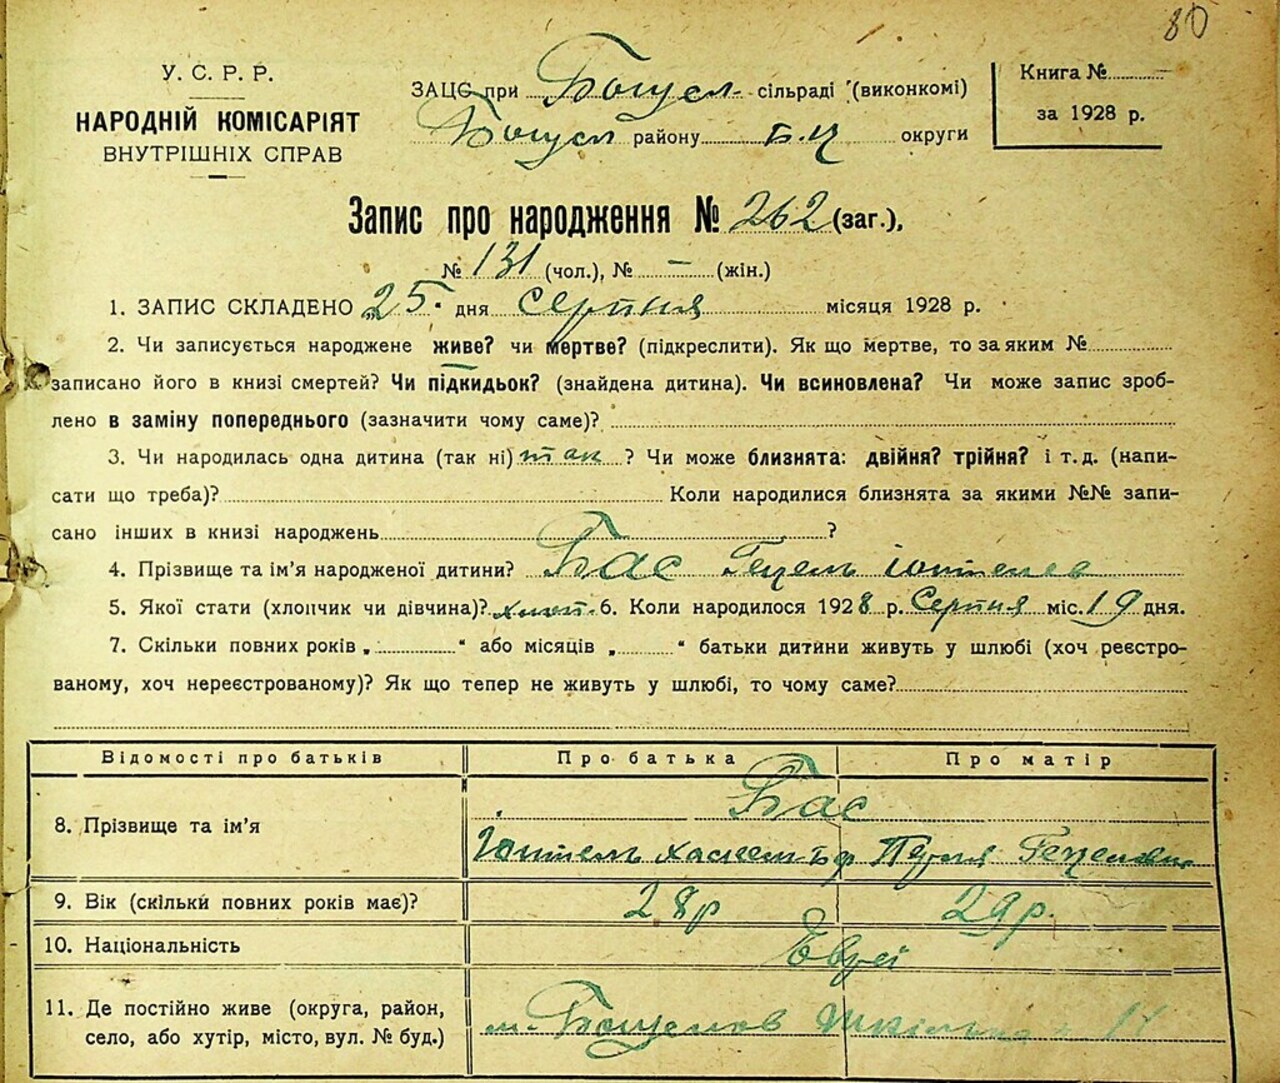 80
У. С. Р. Р.
НАРОДНІЙ КОМІСАРІЯТ
ВНУТРІШНІХ СПРАВ
ЗАЦС при Богусл. сільраді (виконкомі)
Богусл району Б.Ц округи
Книга №
за 1928 р.
Запис про народження № 262 (заг.),
№ 131 (чол.), № – (жін.)
1. ЗАПИС СКЛАДЕНО „25" дня Серпня місяця 1928 р.
2. Чи записується народжене живе? чи мертве? (підкреслити). Як що мертве, то за яким №
записано його в книзі смертей? Чи підкидьок? (знайдена дитина). Чи всиновлена? Чи може запис зроб-
лено в заміну попереднього (зазначити чому саме)?
3. Чи народилась одна дитина (так ні) так ? Чи може близнята: двійня? трійня? і т. д. (напи-
сати що треба)? Коли народилися близнята за якими №№ запи-
сано інших в книзі народжень ?
4. Прізвище та ім'я народженої дитини? Бас Гецель
5. Якої стати (хлопчик чи дівчина)? хлоп. 6. Коли народилося 1928 р. Серпня міс. 19 дня.
7. Скільки повних років „ " або місяців „ " батьки дитини живуть у шлюбі (хоч реєстро-
ваному, хоч нереєстрованому)? Як що тепер не живуть у шлюбі, то чому саме?
Відомості про батьків Про батька Про матір
8. Прізвище та ім'я Бас
Гецелевна
9. Вік (скільки повних років має)? 28р 29р.
10. Національність Євреї
11. Де постійно живе (округа, район,
село, або хутір, місто, вул. № буд.) м.